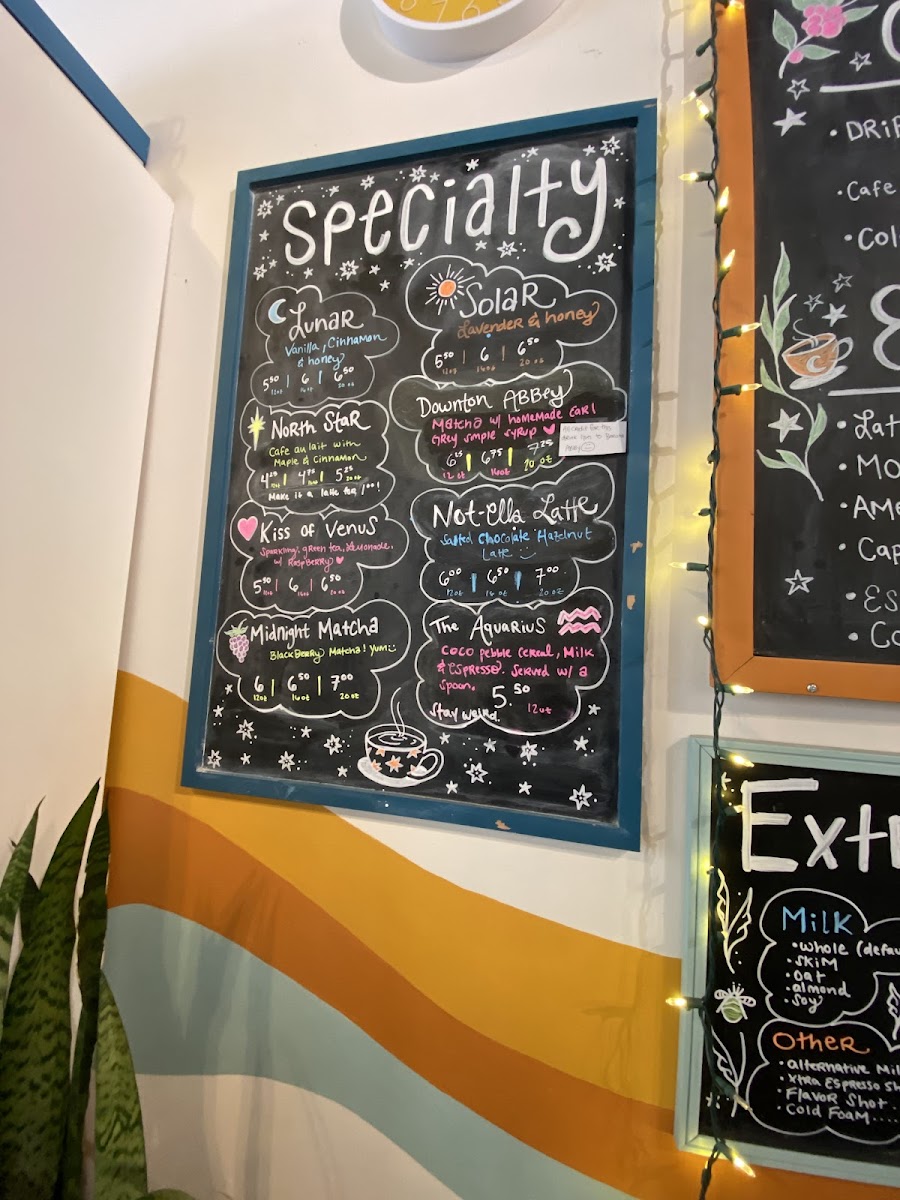 Specialty
Lunar
Vanilla, Cinnamon
& honey
5⁵⁰ | 6 | 6⁵⁰
12oz 16oz 20oz
Solar
Lavender & honey
5⁵⁰ | 6 | 6⁵⁰
12oz 16oz 20oz
North Star
Cafe au lait with
Maple & Cinnamon
4²⁵ | 4⁷⁵ | 5²⁵
12oz 16oz 20oz
Make it a latte for 1⁰⁰!
Downton Abbey
Matcha w/ homemade Earl
Grey simple syrup
6²⁵ | 6⁷⁵ | 7²⁵
12 oz 16oz 20 oz
Kiss of Venus
Sparkling, green tea, lemonade,
w/ Raspberry
5⁵⁰ | 6 | 6⁵⁰
12oz 16oz 20oz
Not-ella Latte
Salted Chocolate Hazelnut
Latte
6⁰⁰ | 6⁵⁰ | 7⁰⁰
12oz 16oz 20 oz
Midnight Matcha
Blackberry Matcha! Yum
6 | 6⁵⁰ | 7⁰⁰
12oz 16oz 20oz
The Aquarius
Coco pebble cereal, Milk
& Espresso. Served w/ a
spoon.
5.⁵⁰
12oz
Stay weird.
• Drip
• Cafe
• Col
• Lat
• Mo
• Ame
• Cap
• Es
• Co
Extr
Milk
• whole (defau
• Skim
• Oat
• almond
• Soy
Other
• alternative Mil
• Xtra Espresso Sh
• Flavor Shot..
• Cold Foam....